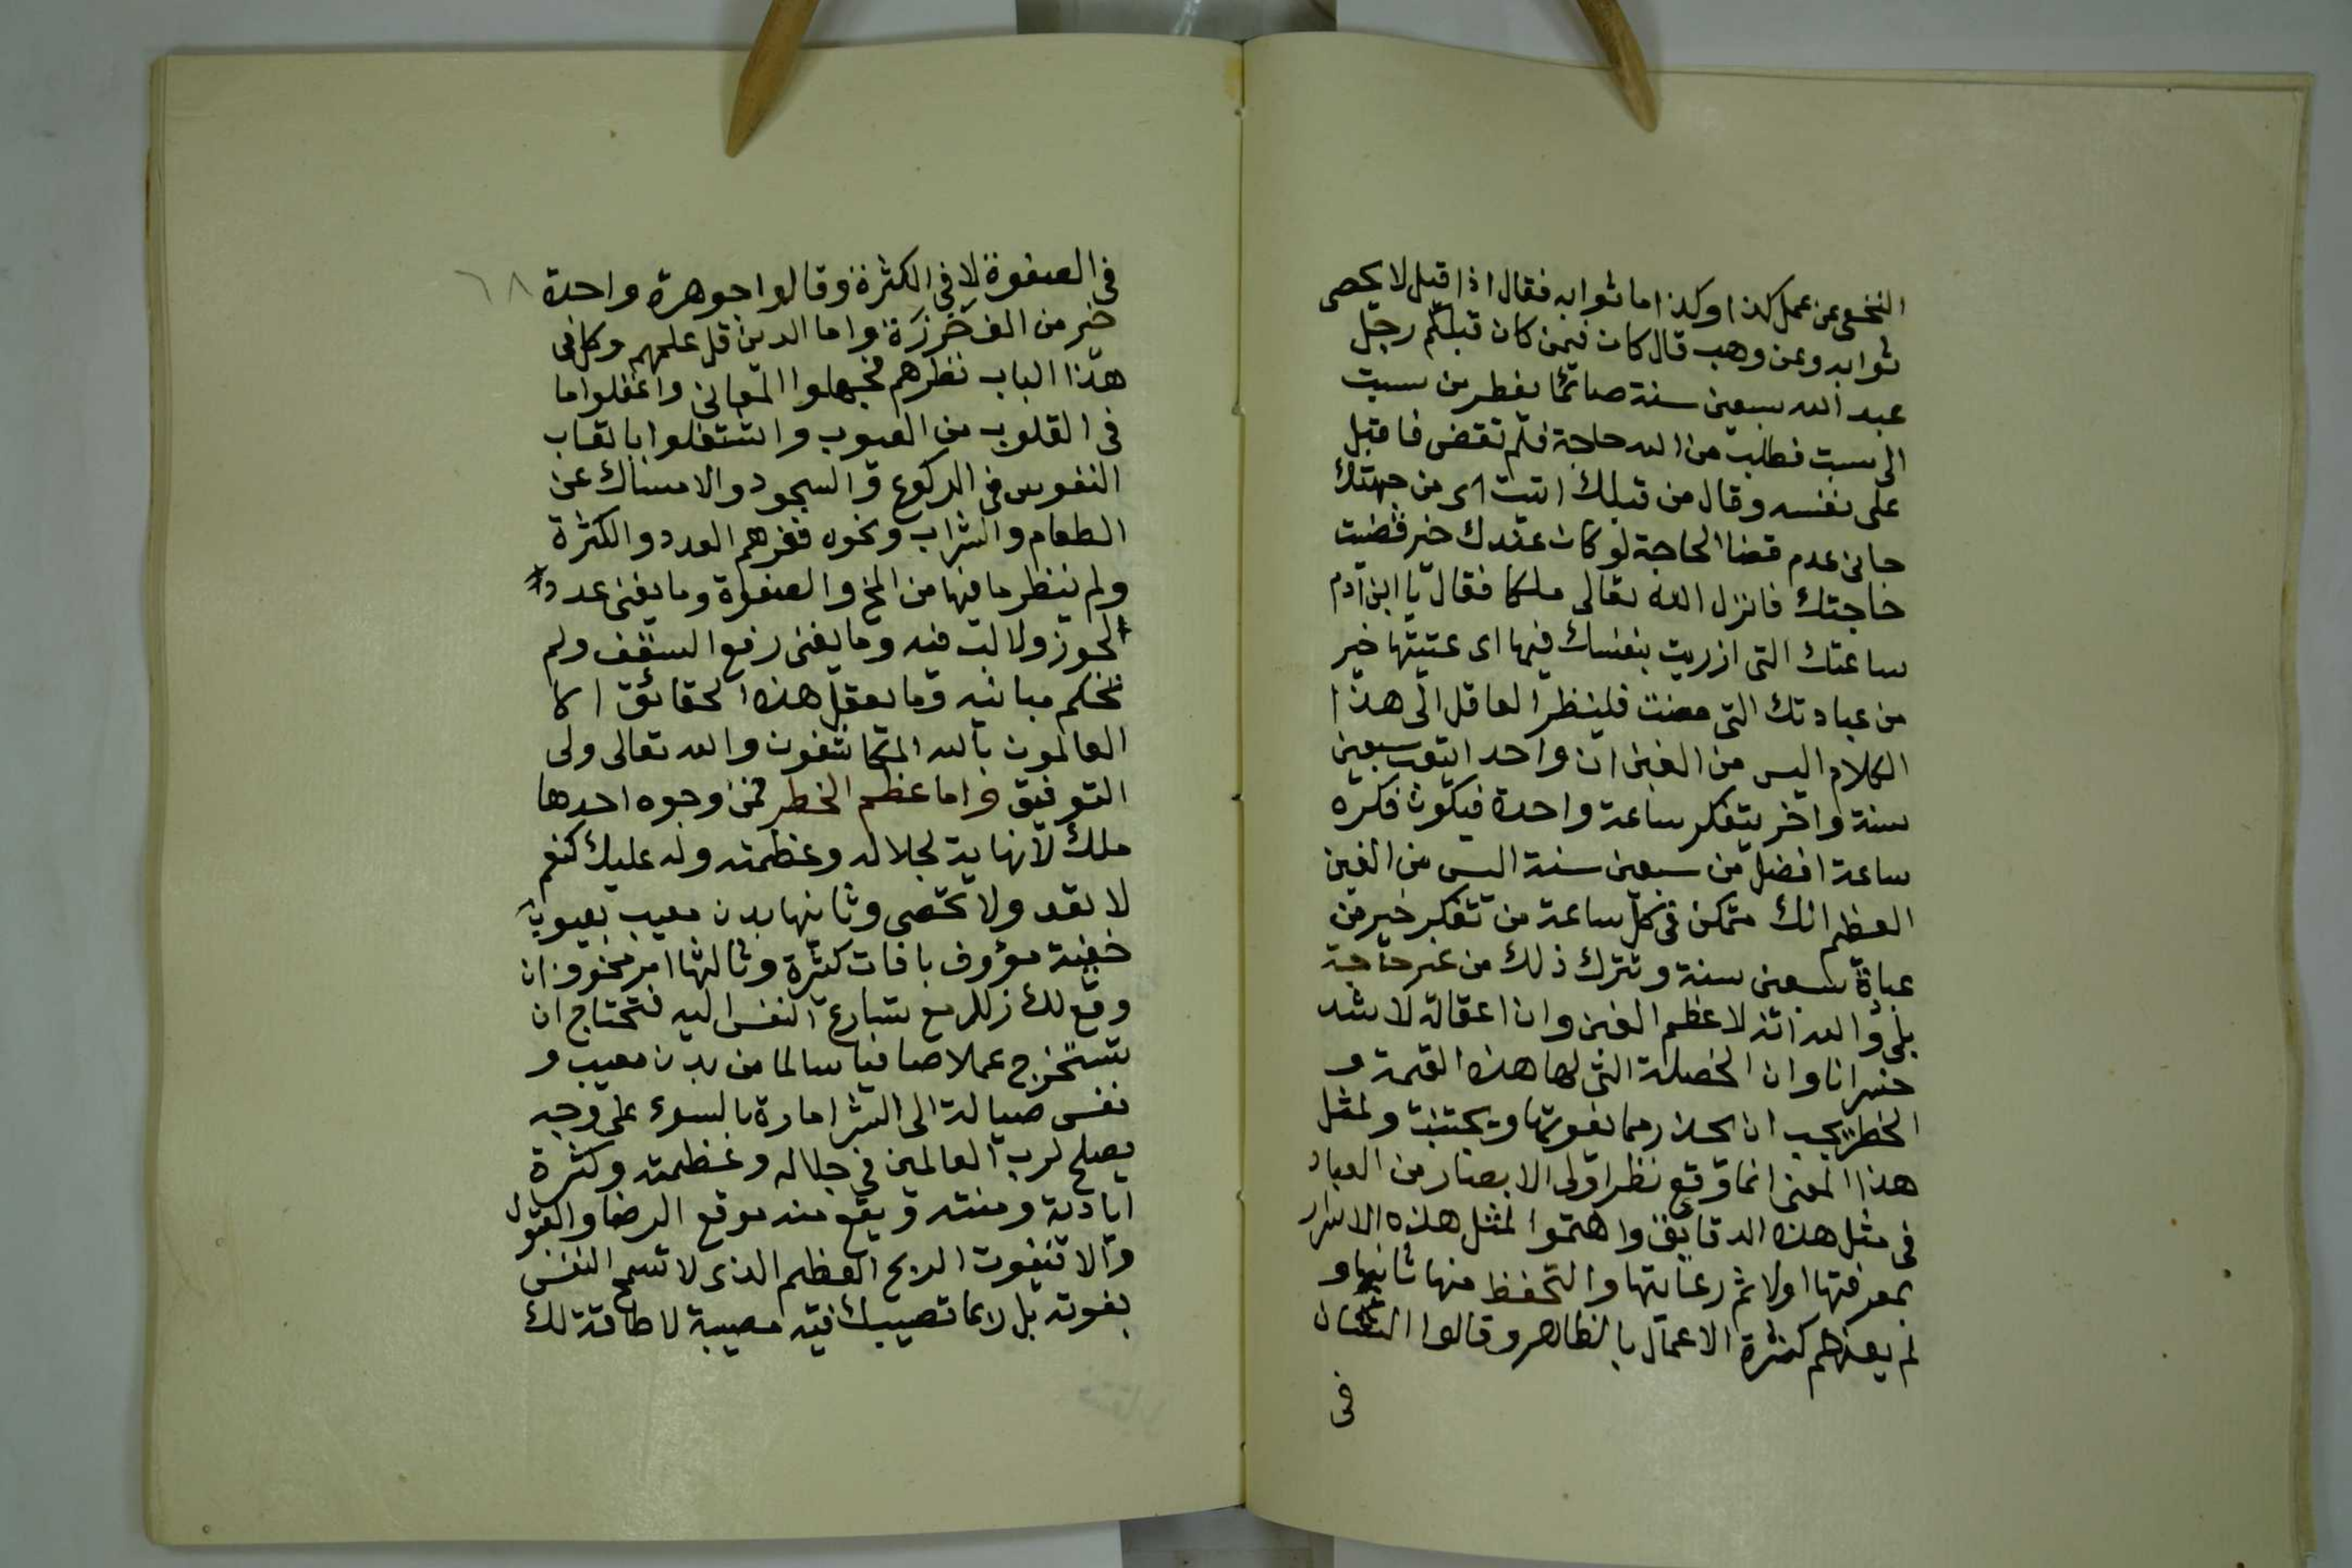 النخعى عن عمل كذا وكذا ما ثوابه فقال اذا قبل لا يحصى
ثوابه وعن وهب قال كان فيمن كان قبلكم رجل
عبد الله سبعين سنة صائما يفطر من سبت
الى سبت فطلب من الله حاجة فلم تقض فاقبل
على نفسه وقال من قبلك اتيت اى من جهتك
جانى عدم قضا الحاجة لو كان عندك خير قضيت
حاجتك فانزل الله تعالى ملكا فقال يا ابن آدم
ساعتك التى ازريت بنفسك فيها اى عتبتها خير
من عبادتك التى مضت فلينظر العاقل الى هذا
الكلام اليس من الغبن ان واحد ايتعب سبعين
سنة واخر يتفكر ساعة واحدة فيكون فكره
ساعة افضل من سبعين سنة اليس من الغبن
العظيم انك متمكن فى كل ساعة من تفكر خير من
عباة سبعين سنة وتترك ذلك من غير حاجة
بلى والله انه لاعظم الغبن وان اغفاله لاشد
خسرانا وان الخصلة التى لها هذه القيمة و
الخطر يجب ان يحذر مما يفوتها ويجتنب ولمثل
هذا المعنى انما وقع نظر اولى الابصار من العباد
فى مثل هذه الدقايق واهتموا لمثل هذه الاسرار
بمعرفتها اولا ثم رعايتها والتحفظ منها ثانيا و
لم يغنهم كثرة الاعمال بالظاهر وقالوا الشان
فى
٦٨
فى الصفوة لا فى الكثرة وقالوا جوهرة واحدة
خير من الف خَرَزَة واما الذين قل علمهم وكل فى
هذا الباب نظرهم فجهلوا المعانى واغفلوا ما
فى القلوب من العيوب واشتغلوا باتعاب
النفوس فى الركوع والسجود والامساك عن
الطعام والشراب ونحوه فغرهم العدد والكثرة
ولم ينظر ما فيها من المخ والصفوة وما يغنى عدد
الجوز ولا لب فيه وما يغنى رفع السقف ولم
تحكم مبانيه وما يعقل هذه الحقائق الا
العالمون بالله المكاشفون والله تعالى ولى
التوفيق واما عظم الخطر فمن وجوه احدها
ملك لا نهاية لجلاله وعظمته وله عليك نعم
لا تعد ولا تحصى وثانيها بدن معيب بعيوب
خفية مؤوف بافات كثيرة وثالثها امر مخوف ان
وقع لك زلل مع تسارع النفس اليه فتحتاج ان
تستخرج عملا صافيا سالما من بدن معيب و
نفس ميالة الى الشر امارة بالسوء على وجه
يصلح لرب العالمين فى جلاله وعظمته وكثرة
اياديه ومنته ويقع منه موقع الرضا والقبول
والا تفوت الربح العظيم الذى لا تسمح النفس
بفوته بل ربما تصيبك فيه مصيبة لا طاقة لك